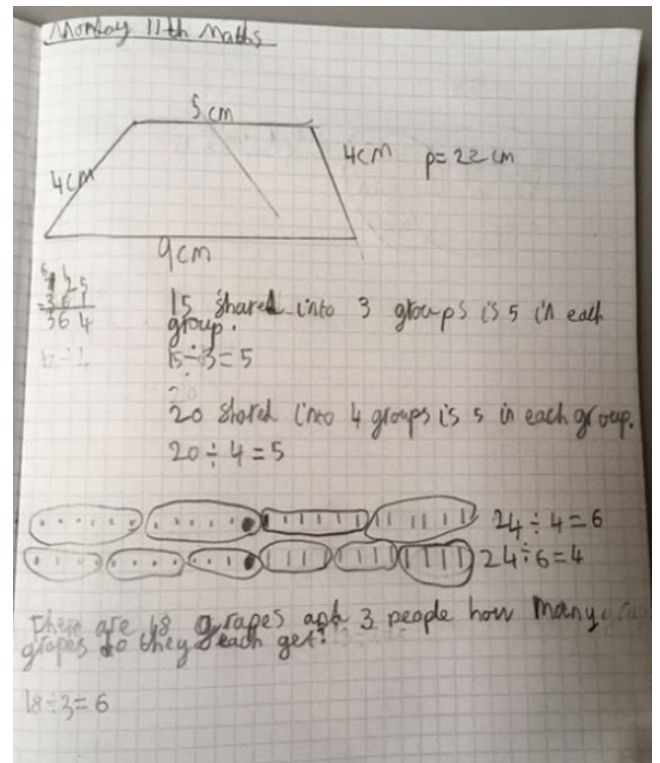 Monday 11th Maths
5 cm
4cm
4cm p=22 cm
9cm
6 1
7 2 5
- 3 6 1
3 6 4
15 shared into 3 groups is 5 in each
group.
15÷3=5
20
20 shared into 4 groups is 5 in each group.
20÷4=5
24÷4=6
24÷6=4
There are 18 grapes and 3 people how many
grapes do they each get?
18÷3=6